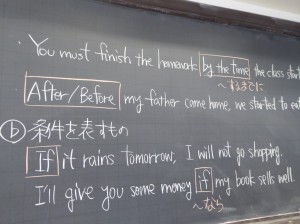 · You must finish the homework by the time the class start
〜するまでに
After/Before my father came home, we started to eat
ⓑ 条件を表すもの
If it rains tomorrow, I will not go shopping.
I'll give you some money if my book sells well.
〜なら